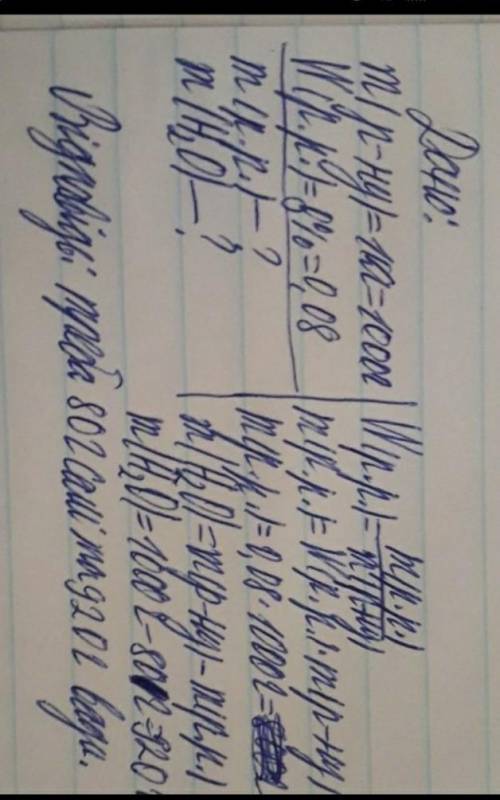 Дано:
m(р-ну)=1кг=1000г
W(р.р.)=8%=0,08
m(р.р.)-?
m(H₂O)-?
W(р.р.)=m(р.р.)/m(р-ну)
m(р.р.)=W(р.р.)·m(р-ну)
m(р.р.)=0,08·1000г=
m(H₂O)=m(р-ну)-m(р.р.)
m(H₂O)=1000г-80г=920
Відповідь: треба 80г солі та 920г води.